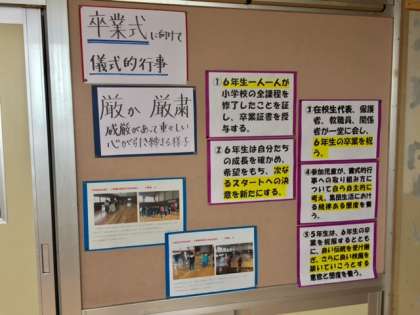 卒業式に向けて
儀式的行事
厳か 厳粛
威厳があって重々しい
心が引き締る様子
①6年生一人一人が
小学校の全課程を
修了したことを証
し、卒業証書を授
与する。
②6年生は自分たち
の成長を確かめ、
希望をもち、次なる
スタートへの決
意を新たにする。
③在校生代表、保護
者、教職員、関係
者が一堂に会し、
6年生の卒業を祝
う。
④参加児童が、儀式的行
事への取り組み方に
ついて自ら自主的に
考え、集団生活におけ
る規律ある態度を養
う。
⑤5年生は、6年生の卒
業を祝福するととも
に、良い伝統を受け継
ぎ、さらに良い校風を
築いていこうとする
意欲と態度を養う。